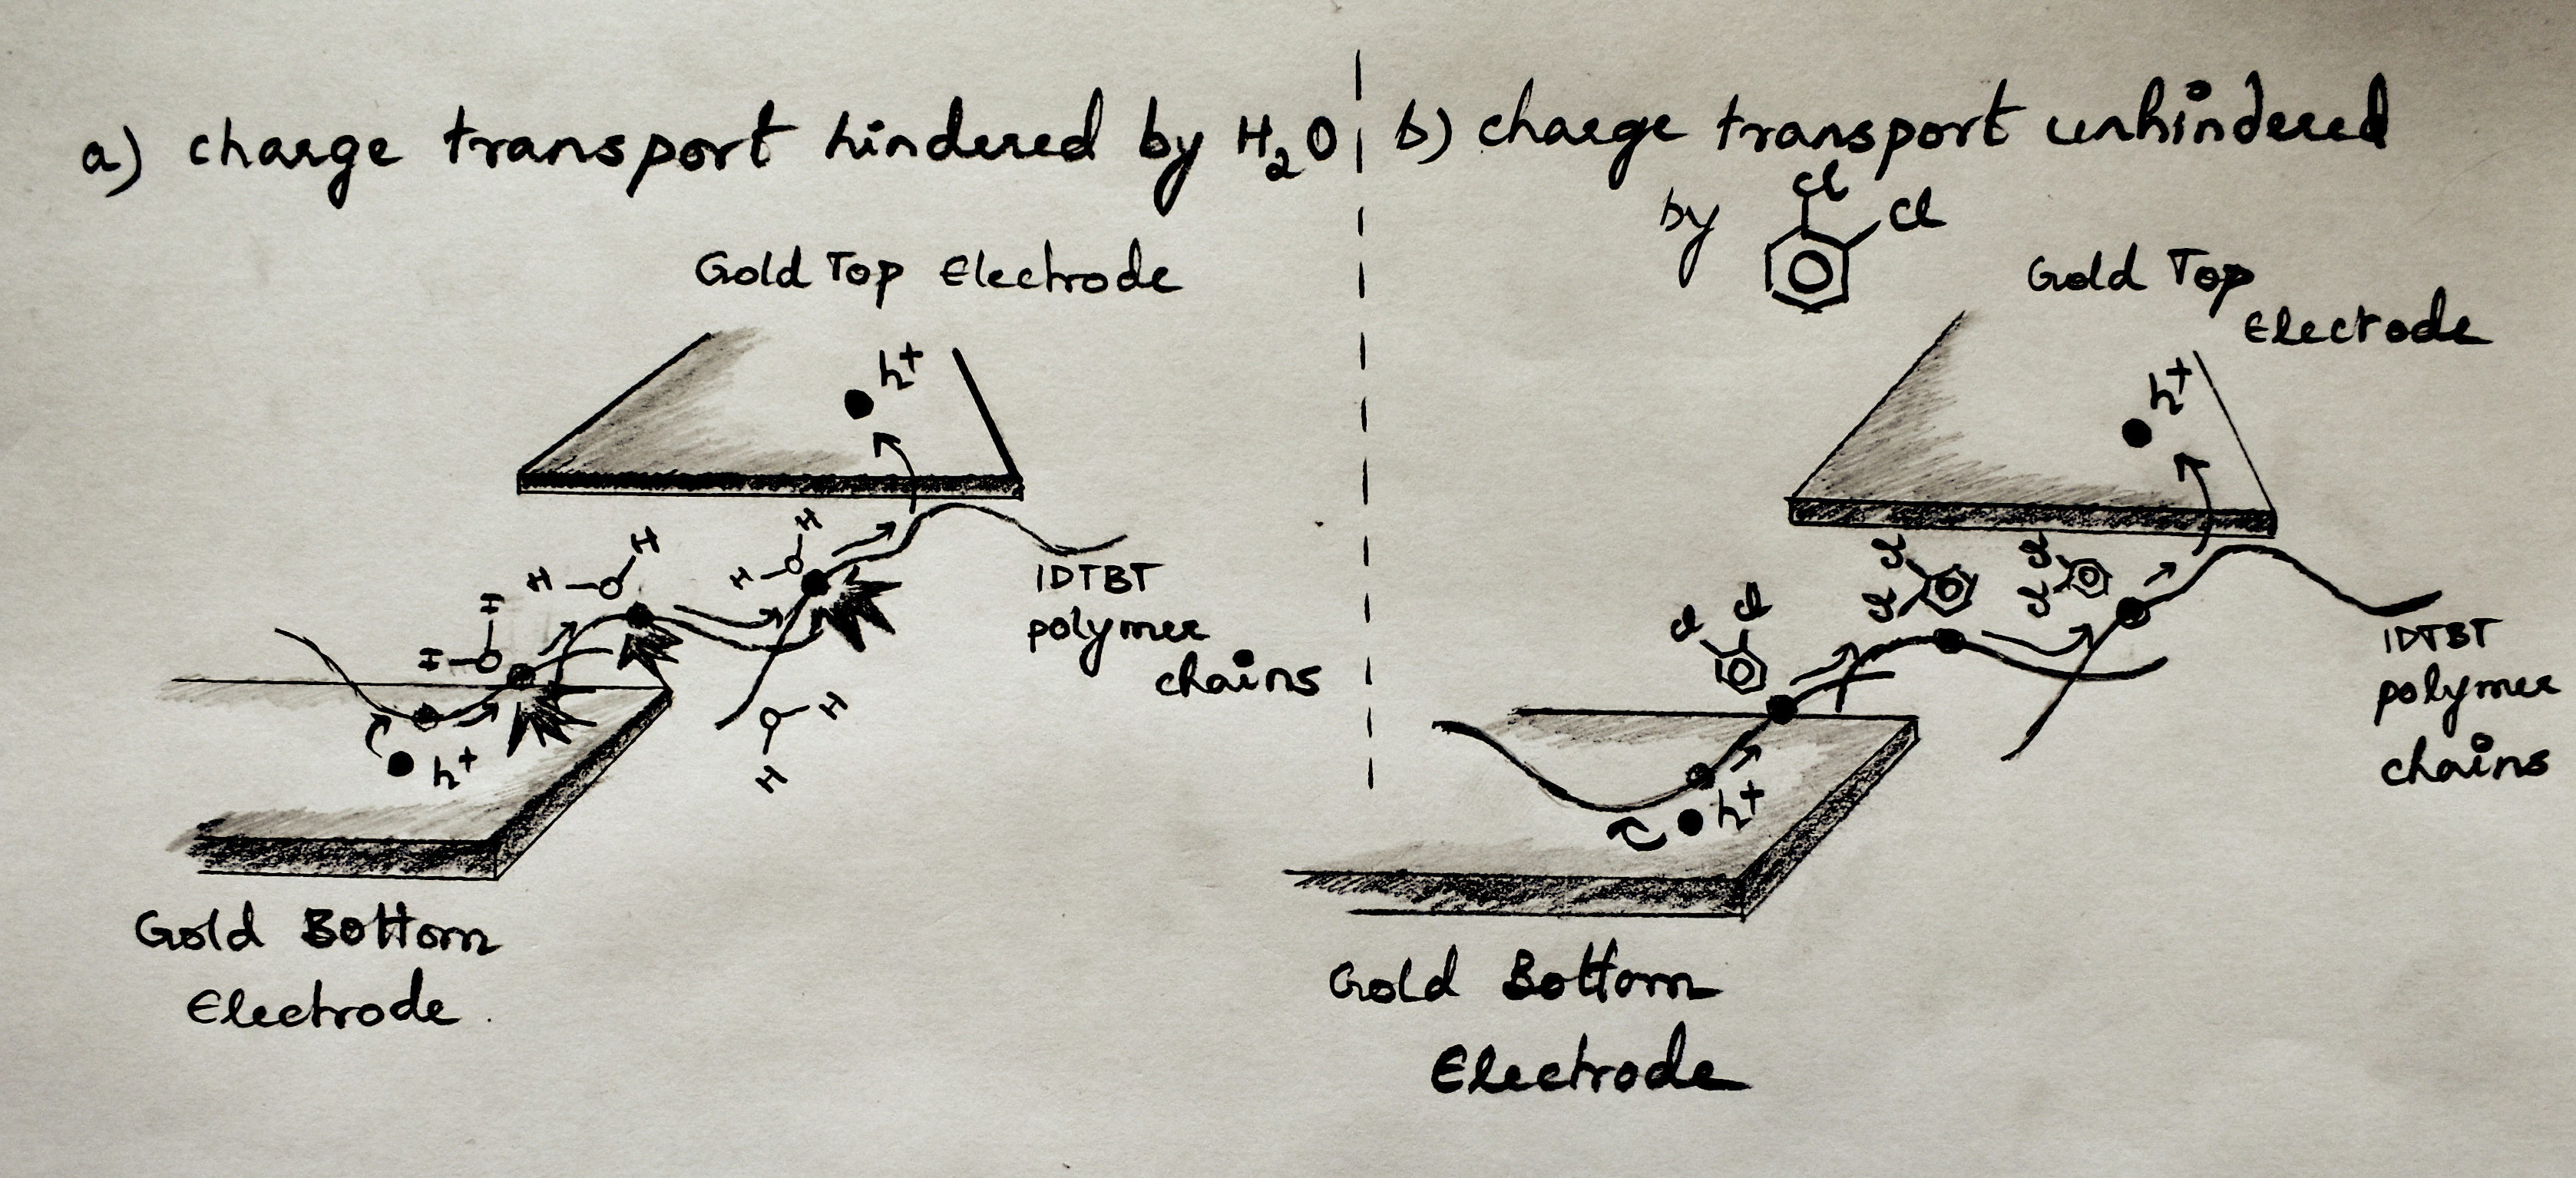 a) charge transport hindered by H₂O
Gold Top Electrode
h+
H
H
H
H
H
H
H
H
O
O
O
O
IDTBT
polymer
chains
h+
Gold Bottom
Electrode
b) charge transport unhindered
by
Cl
Cl
Gold Top
Electrode
h+
Cl
Cl
Cl
Cl
Cl
Cl
IDTBT
polymer
chains
h+
Gold Bottom
Electrode